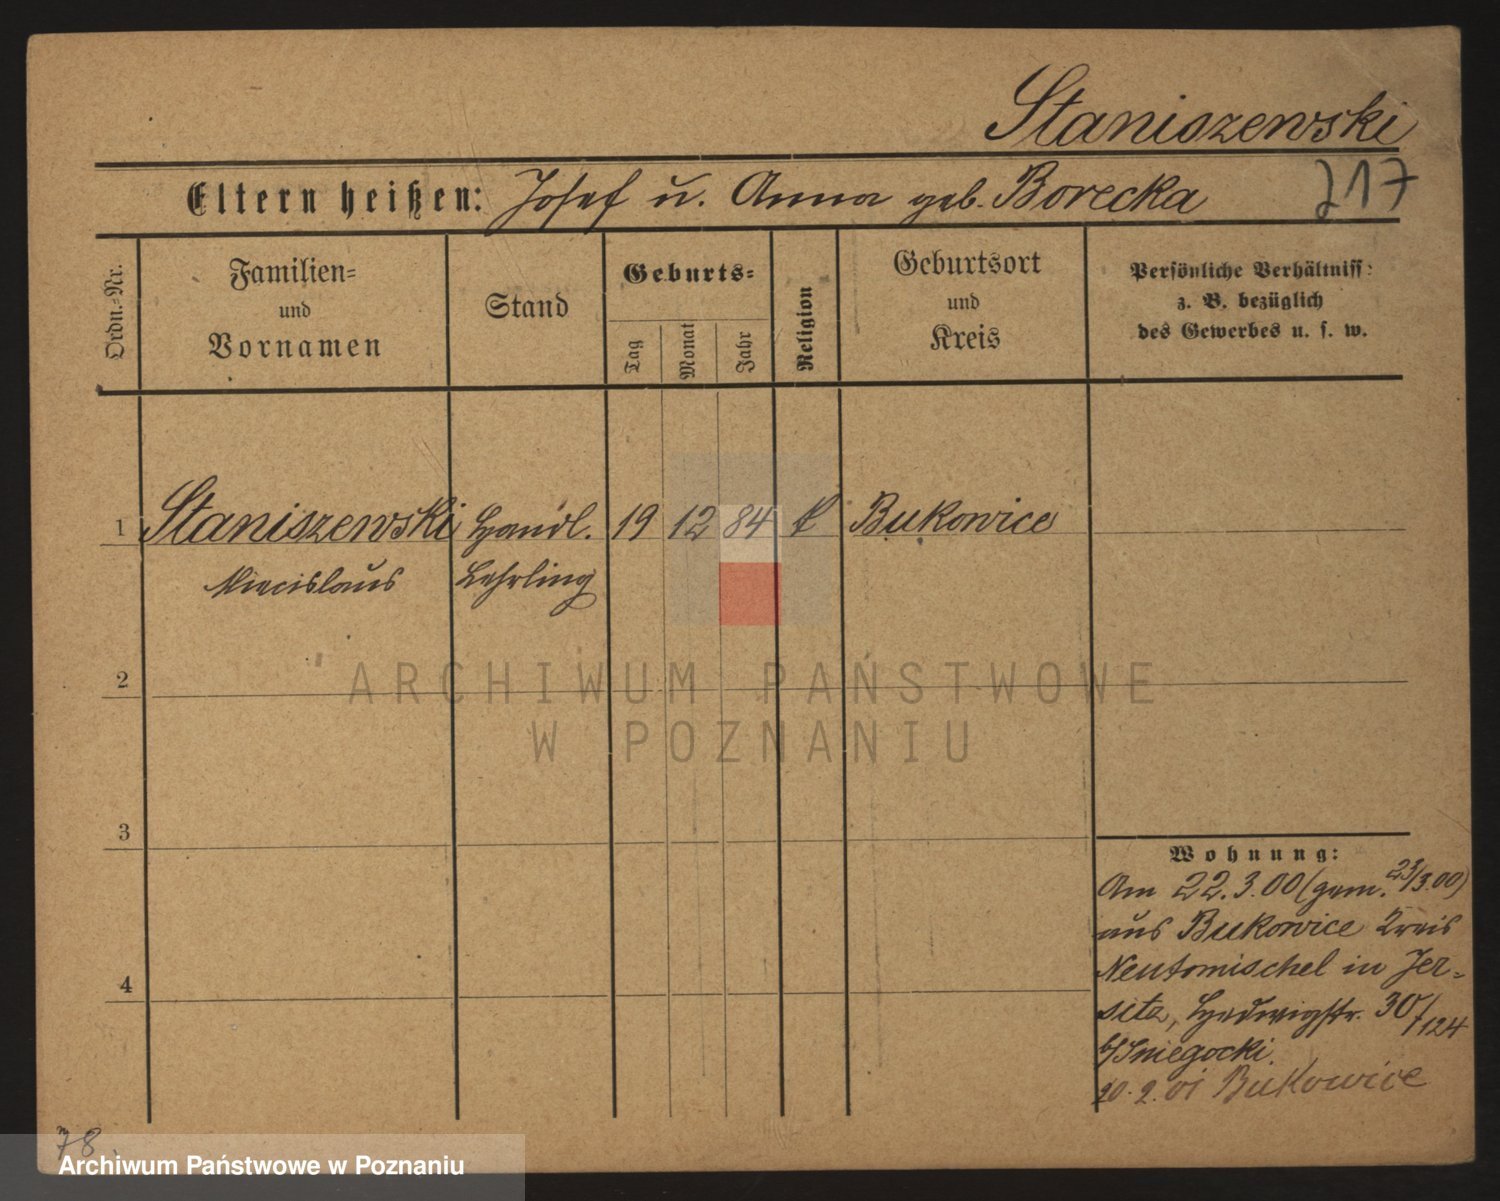 Staniszewski
Eltern heißen: Josef u. Anna geb. Borecka
217
Ordn.-Nr.
Familien-
und
Vornamen
Stand
Geburts-
Tag
Monat
Jahr
Religion
Geburtsort
und
Kreis
Persönliche Verhältniss:
z. B. bezüglich
des Gewerbes u. s. w.
1 Staniszewski Handl. 19 12 84 k Bukowice
Miecislaus Lehrling
2
ARCHIWUM PAŃSTWOWE
W POZNANIU
3
Wohnung:
Am 22.3.00 (gem. 23/3.00)
aus Bukowice Kreis
4
Neutomischel in Jer-
sitz, Hedwigstr. 30/124
b/Sniegocki.
20.2.01 Bukowice
78.
Archiwum Państwowe w Poznaniu